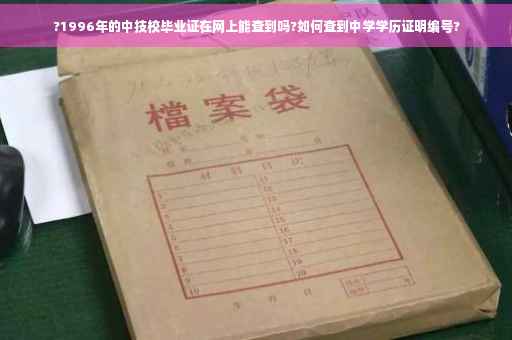 ?1996年的中技校毕业证在网上能查到吗?如何查到中学学历证明编号?
檔案袋
材料目次
1 11
2 12
3 13
4 14
5 15
6 16
7 17
8 18
9 19
10 20
年 月 日